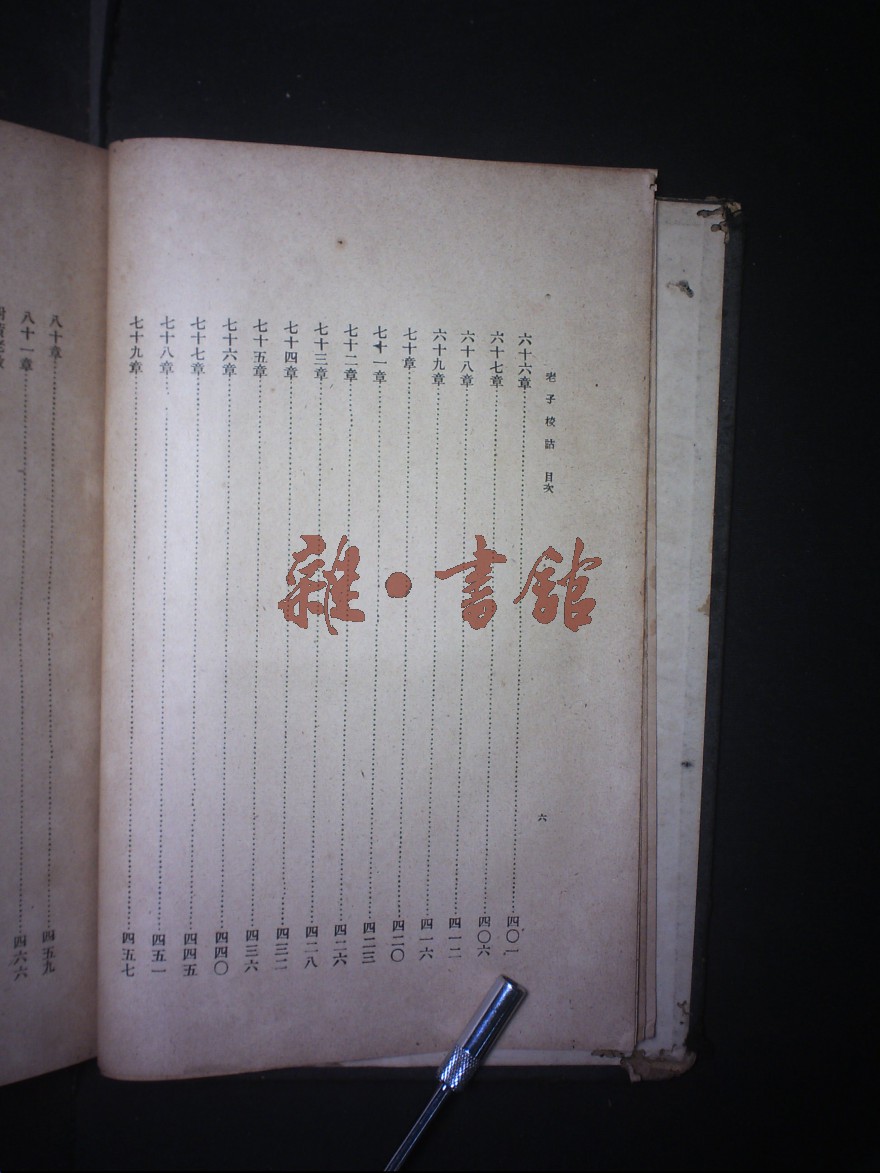 老子校詁 目次 六
六十六章 四〇一
六十七章 四〇六
六十八章 四一二
六十九章 四一六
七十章 四二〇
七十一章 四二三
七十二章 四二六
七十三章 四二八
七十四章 四三二
七十五章 四三六
七十六章 四四〇
七十七章 四四五
七十八章 四五一
七十九章 四五七
八十章 四五九
八十一章 四六六
雜·書館